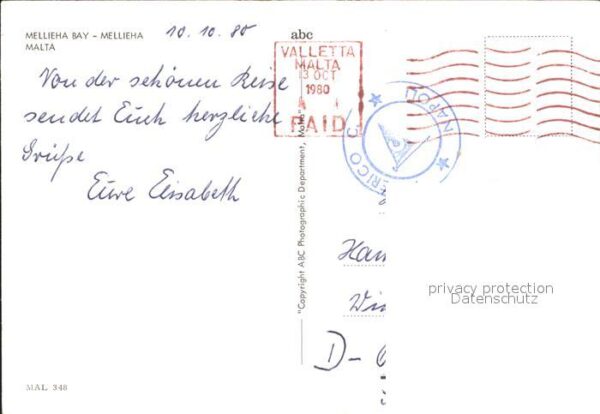 MELLIEHA BAY – MELLIEHA
MALTA
10.10.80
abc
Von der schönen Reise
sendet Euch herzliche
Grüße
Eure Elisabeth
VALLETTA
MALTA
13 OCT
1980
PAID
NAPOLI
"Copyright ABC Photographic Department, Malta
Han
Wi
D-
privacy protection
Datenschutz
MAL 348